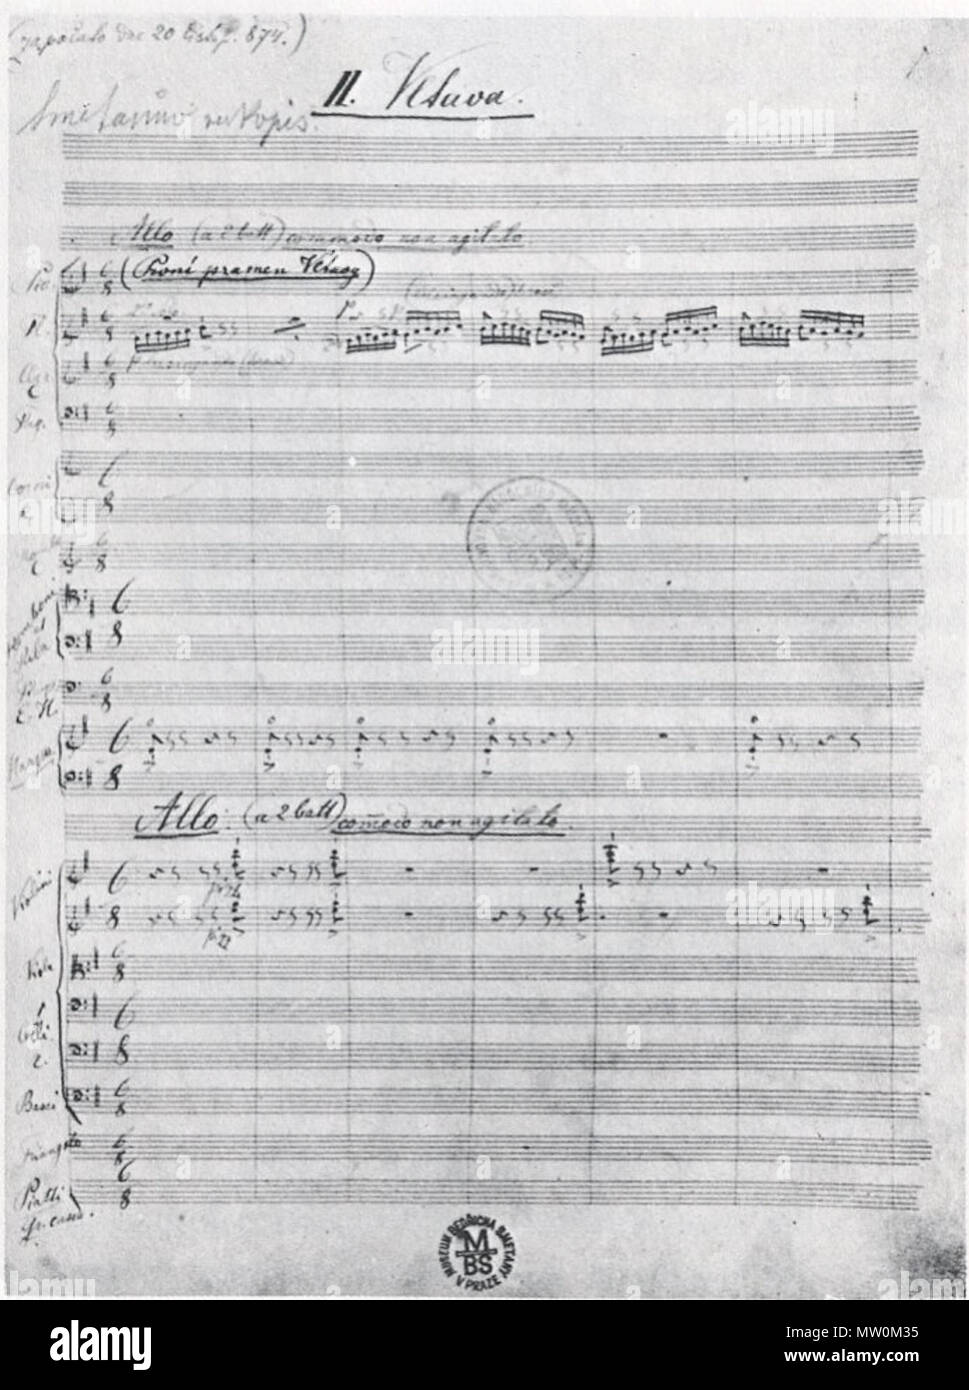 (započato dne 20 Listp. 874.)
II. Vltava.
Smetanův rukopis.
Allo (a 2 batt) commodo non agitato
(První pramen Vltavy)
Pic.
Fl.
C
Fag.
Corni
C
Tromboni
et
Tuba
E. H.
Harpa
Allo: (a 2 batt) comodo non agitato.
Violini
pizz
pizz
Viola
Celli
Bassi
Triangolo
Piatti
Gr. cassa.
MUSEUM BEDŘICHA SMETANY V PRAZE
MBS
alamy
Image ID: MW0M35
www.alamy.com